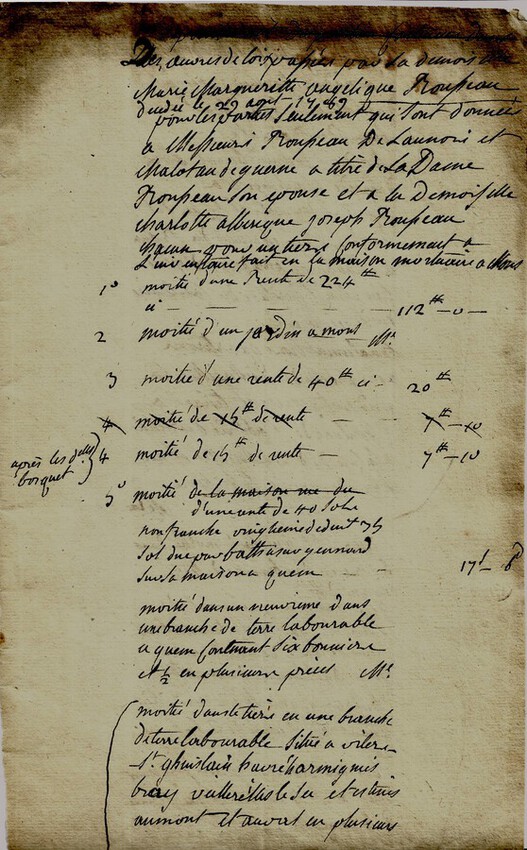 Des œuvres de loix passées par la demoiselle
Marie Margueritte angelique Roupeau
decedée le 29 aout 1789
pour les parties seulement qui sont données
a Messieurs Roupeau De Launois et
Malotau de guerne a titre de La Dame
Roupeau son epouse et a la Demoiselle
charlotte albertique joseph Roupeau
chacun pour un tiers conformement a
L'inventaire fait en la maison mortuaire a Mons
1° moitié d'une Rente de 224 tt
ci — — — — 112 tt — 0 —
2 moitié d'un jardin a mons Mr.
3 moitié d'une rente de 40 tt ci — 20 tt
4 moitié de 15 tt de rente — 7 tt — 10
après les dlles bosquet 4 moitié de 15 tt de rente — 7 tt — 10
5° moitié de la maison rue du
d'une rente de 40 sols
non franche vingtieme deduit 35
sol due par balthasar
sur sa maison a quem — — 17 s — 6 d
moitié dans un neuvieme dans
une branche de terre labourable
a quem contenant six bonniers
et ½ en plusieurs pieces Mr.
moitié dans le tiers en une branche
de terre labourable situé a viler
St. ghuislain havré harmignies
bray villereille le sec et
aumont et auvert en plusieurs